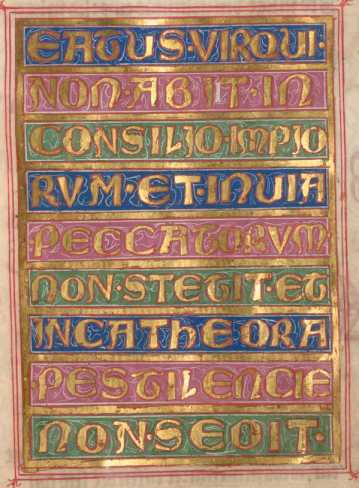 EATUS·VIRQUI·
NON·ABIIT·IN
CONSILIO·IMPIO
RVM·ET·INUIA
PECCATORVM
NON·STETIT·ET
INCATHEDRA
PESTILENCIE
NON·SEDIT·